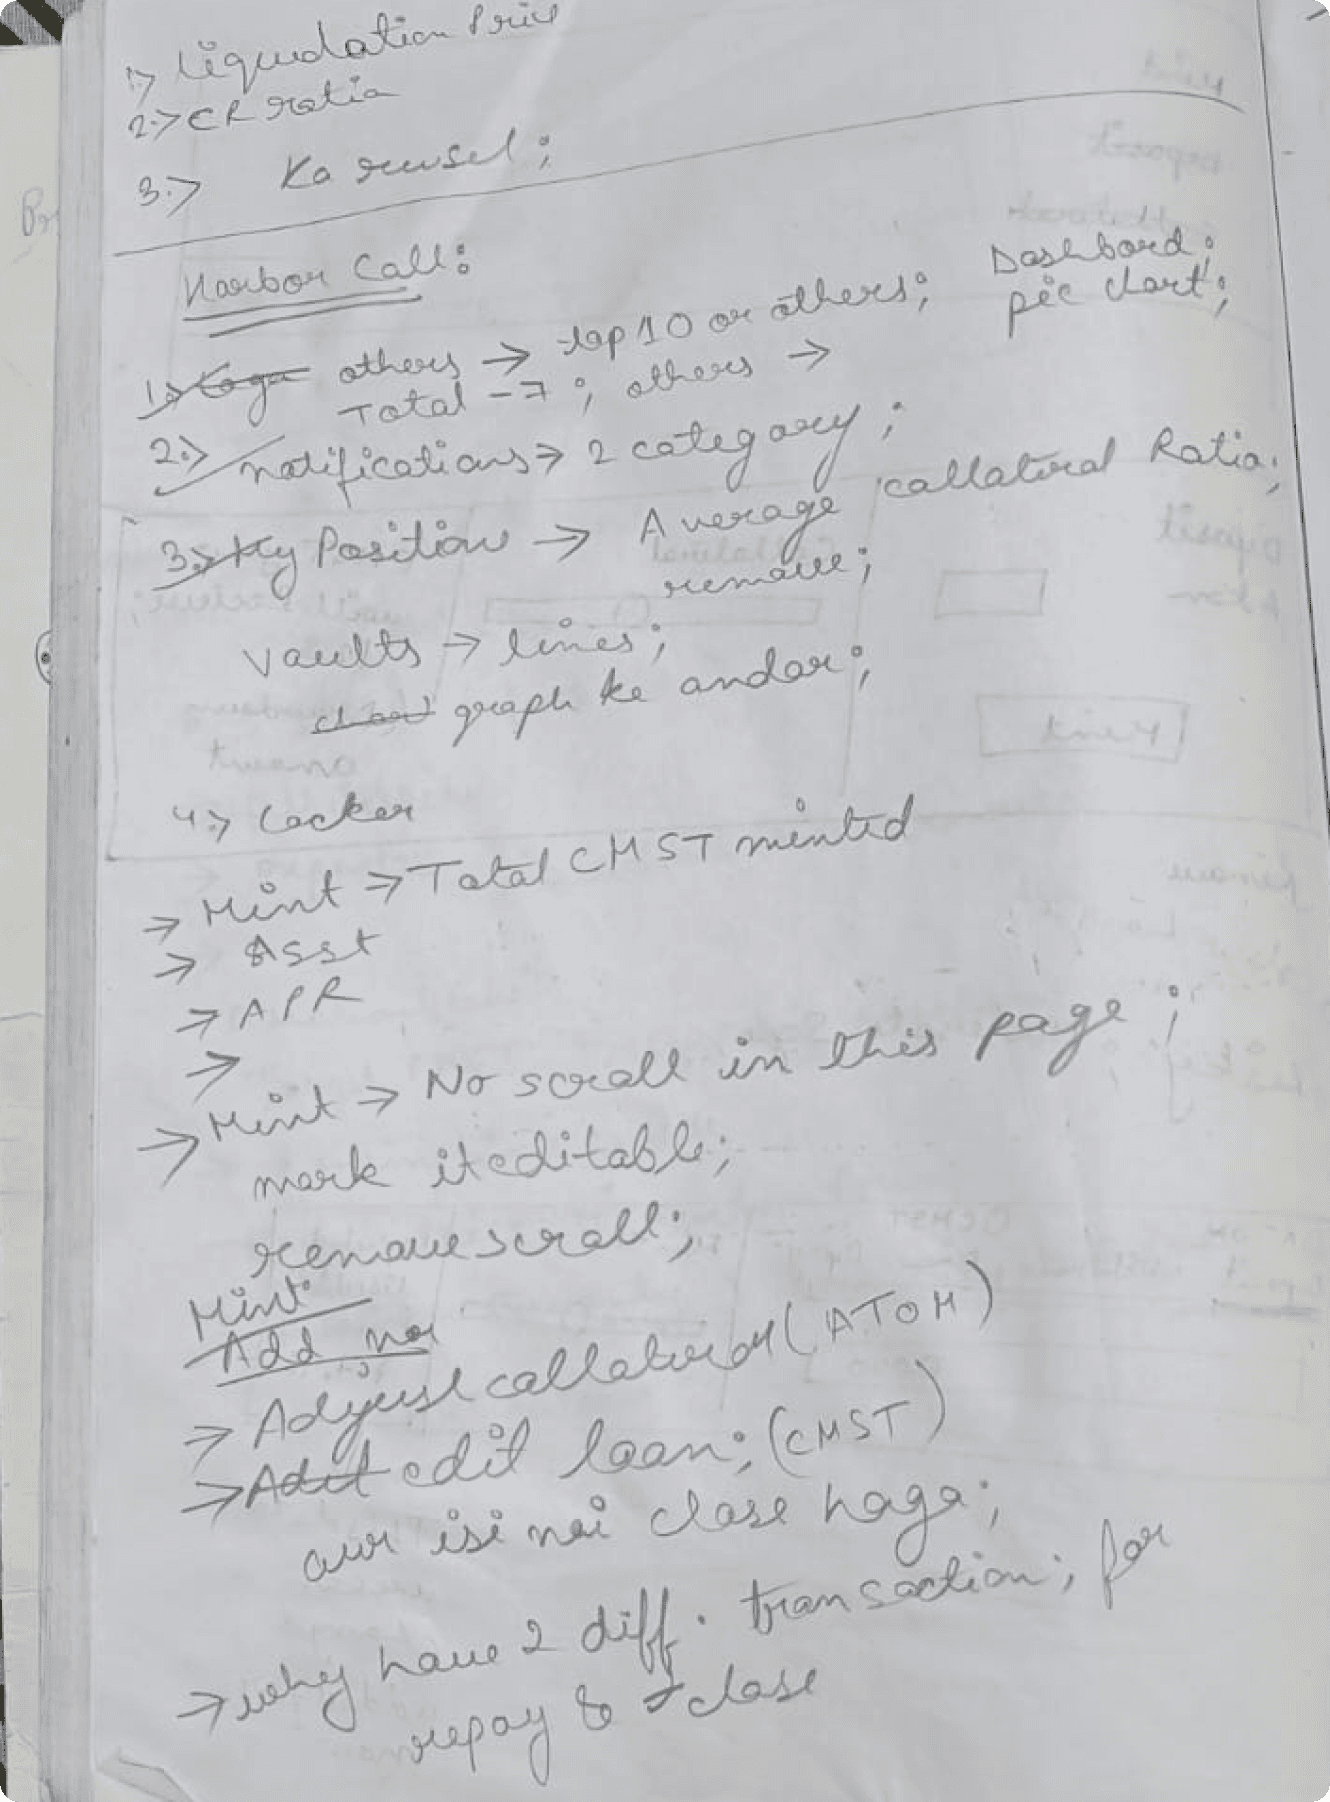 1.> Liquidation Price
2.> CR ratio
3.> Karousel;
Harbor Call:
1.> others → top 10 or others; Dashbord;
pie chart;
Total - 7; others →
2.> notifications → 2 category;
3.> My Position → Average collateral Ratio;
remove;
Vaults → lines;
chart graph ke andar;
4.> Locker
→ Mint → Total CMST minted
→ Asst
→ APR
→
→ Mint → No scroll in this page;
mark it editable;
remove scroll;
Mint
Add no
→ Adjust collateral (ATOM)
→ Adit edit loan; (CMST)
aur isi nai close hoga;
→ why have 2 diff. transaction; for
repay & close